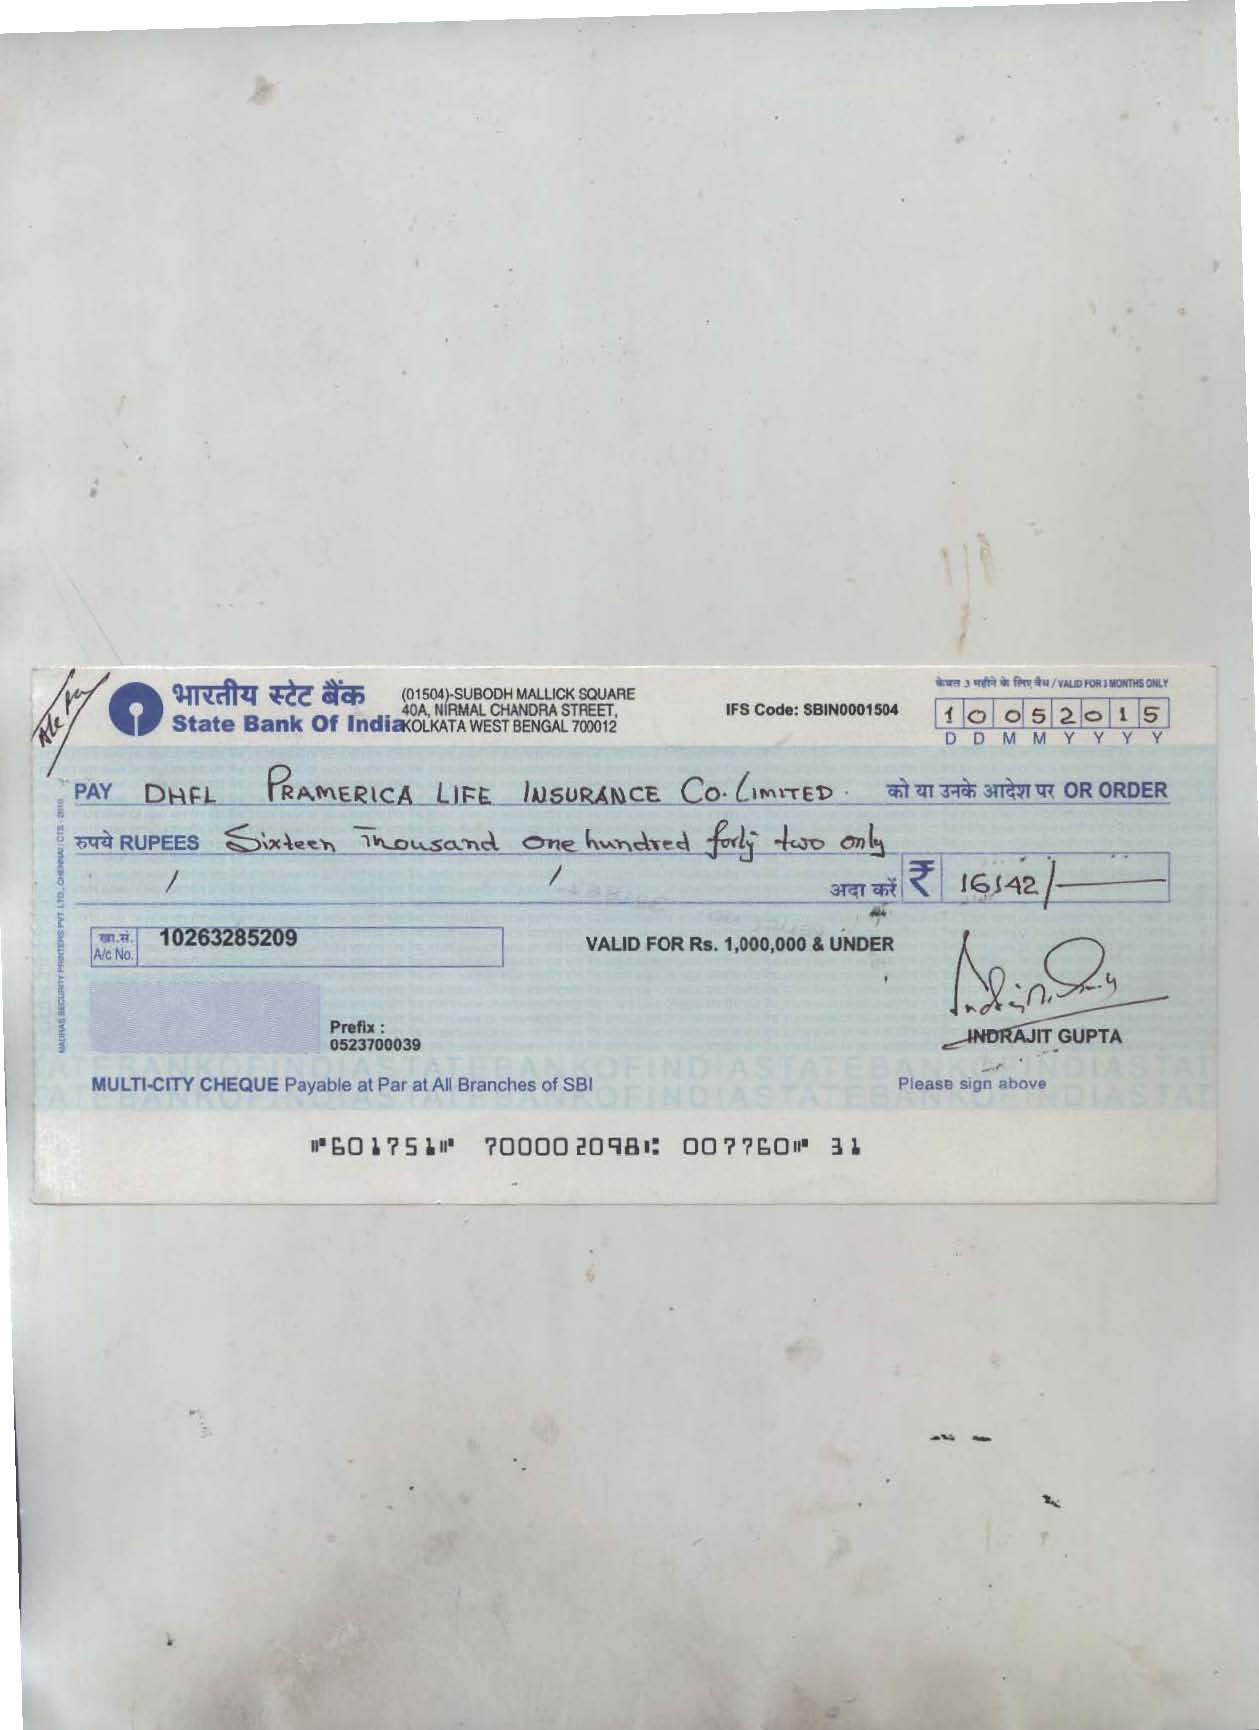 भारतीय स्टेट बैंक
State Bank Of India
(01504)-SUBODH MALLICK SQUARE
40A, NIRMAL CHANDRA STREET,
KOLKATA WEST BENGAL 700012
IFS Code: SBIN0001504
केवल 3 महीने के लिए वैध / VALID FOR 3 MONTHS ONLY
10052015
D D M M Y Y Y Y
PAY DHFL PRAMERICA LIFE INSURANCE CO. LIMITED. को या उनके आदेश पर OR ORDER
रुपये RUPEES Sixteen Thousand one hundred forty two only
अदा करें ₹ 16142/-
खा.सं.
A/c No. 10263285209
VALID FOR Rs. 1,000,000 & UNDER
Prefix :
0523700039
INDRAJIT GUPTA
MULTI-CITY CHEQUE Payable at Par at All Branches of SBI
Please sign above
⑈601751⑈ 700002098⑆ 007760⑈ 31
MADRAS SECURITY PRINTERS PVT. LTD., CHENNAI / CTS - 2010